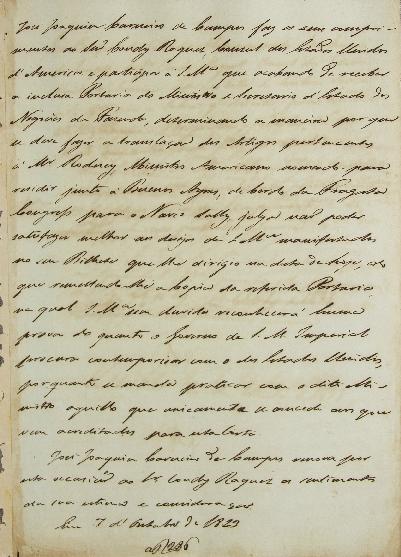 José Joaquim Carneiro de Campos faz os seus compri-
mentos ao Snr Condy Raguet Consul dos Estados Unidos
d'America e participa a S. Mce que acabando de receber
a inclusa Portaria do Ministro e Secretario d'Estado dos
Negocios da Fazenda, determinando a maneira por que
se deve fazer a translação dos Artigos pertencentes
á Mr Rodney Ministro Americano nomeado para
residir junto a Buenos Ayres, de bordo da Fragata
Congress para o Navio Sally, julga não poder
satisfazer melhor aos desejos de S. Mce manifestados
no seu Bilhete que lhe dirigio na data de hoje, do
que remettendo-lhe a copia da referida Portaria
na qual S. Mce sem duvida reconhecerá huma
prova do quanto o Governo de S. M. Imperial
procura contemporizar com o dos Estados Unidos,
porquanto se manda praticar com o dito Mi-
nistro aquillo que unicamente se concede aos que
vem acreditados para esta Corte.
José Joaquim Carneiro de Campos renova por
esta occasião ao Sr Condy Raguet os sentimentos
da sua estima e consideração
Em 7 d' de 1823